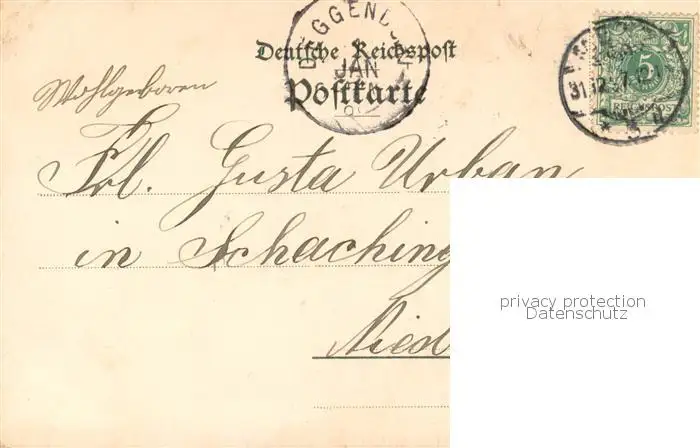 DEGGENDORF
1
JAN
Deutsche Reichspost
Postkarte
5
REICHSPOST
31.12.97
Wohlgeboren
Frl. Gusta Urban
in Schaching
Nied
privacy protection
Datenschutz